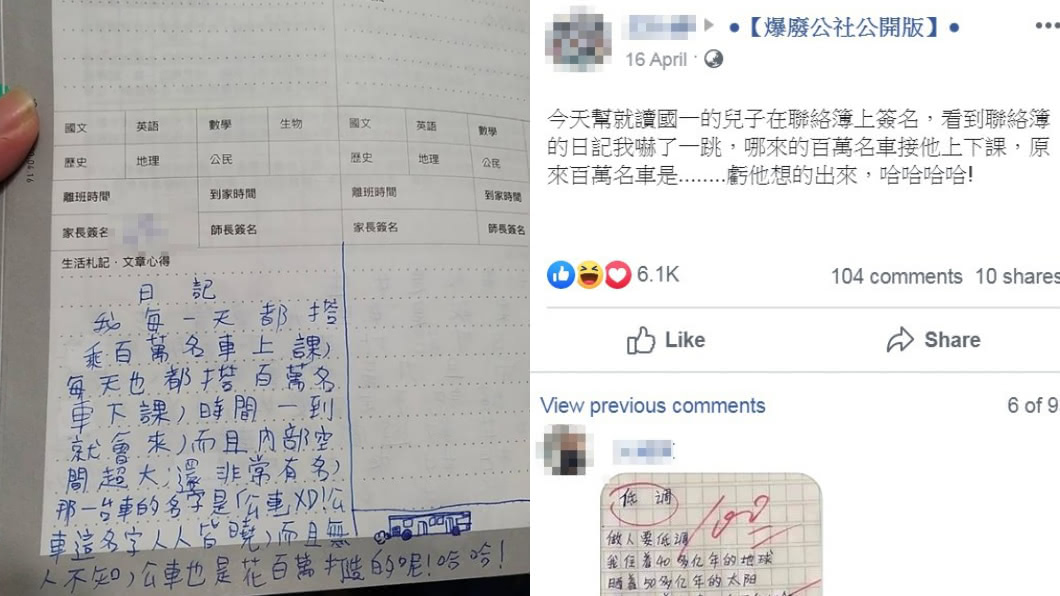 國文 英語 數學 生物 國文 英語 數學
歷史 地理 公民 歷史 地理 公民
離班時間 到家時間 離班時間 到家時間
家長簽名 師長簽名 家長簽名 師長簽名
生活札記．文章心得
日記
我每一天都搭
乘百萬名車上課，
每天也都搭百萬名
車下課，時間一到
就會來，而且內部空
間超大，還非常有名，
那一台車的名字是「公車XD!公
車這名字人人皆曉，而且無
人不知，公車也是花百萬打造的呢!哈哈!
•【爆廢公社公開版】•
16 April
今天幫就讀國一的兒子在聯絡簿上簽名，看到聯絡簿
的日記我嚇了一跳，哪來的百萬名車接他上下課，原
來百萬名車是........虧他想的出來，哈哈哈哈!
6.1K 104 comments 10 shares
Like Share
View previous comments 6 of 9
低調
100
做人要低調
我住着40多亿年的地球
晒着50多亿年的太阳